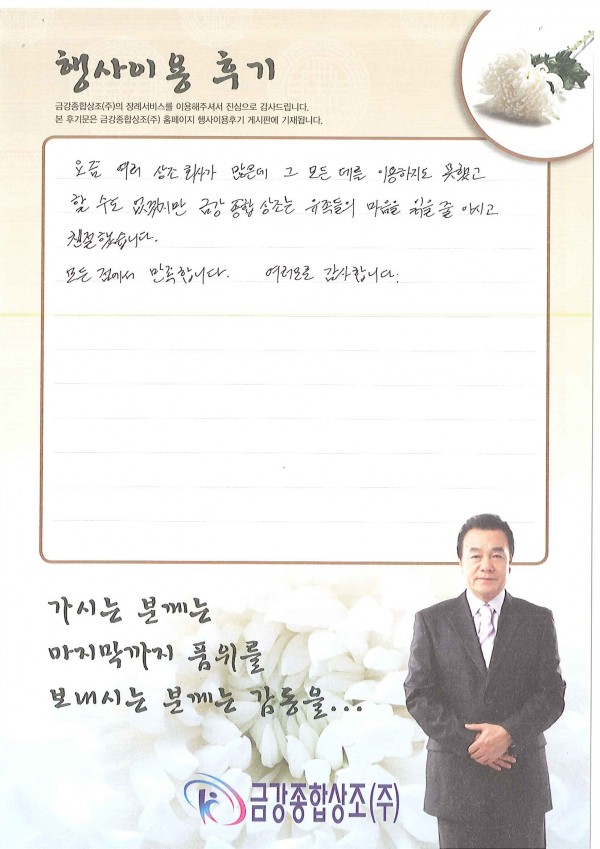 행사이용 후기
금강종합상조(주)의 장례서비스를 이용해주셔서 진심으로 감사드립니다.
본 후기문은 금강종합상조(주) 홈페이지 행사이용후기 게시판에 기재됩니다.
요즘 여러 상조 회사가 많은데 그 모든 데를 이용하지도 못했고
할 수도 없겠지만 금강 종합 상조는 유족들의 마음을 읽을 줄 아시고
친절했습니다.
모든 점에서 만족합니다. 여러모로 감사합니다.
가시는 분께는
마지막까지 품위를
보내시는 분께는 감동을...
금강종합상조(주)